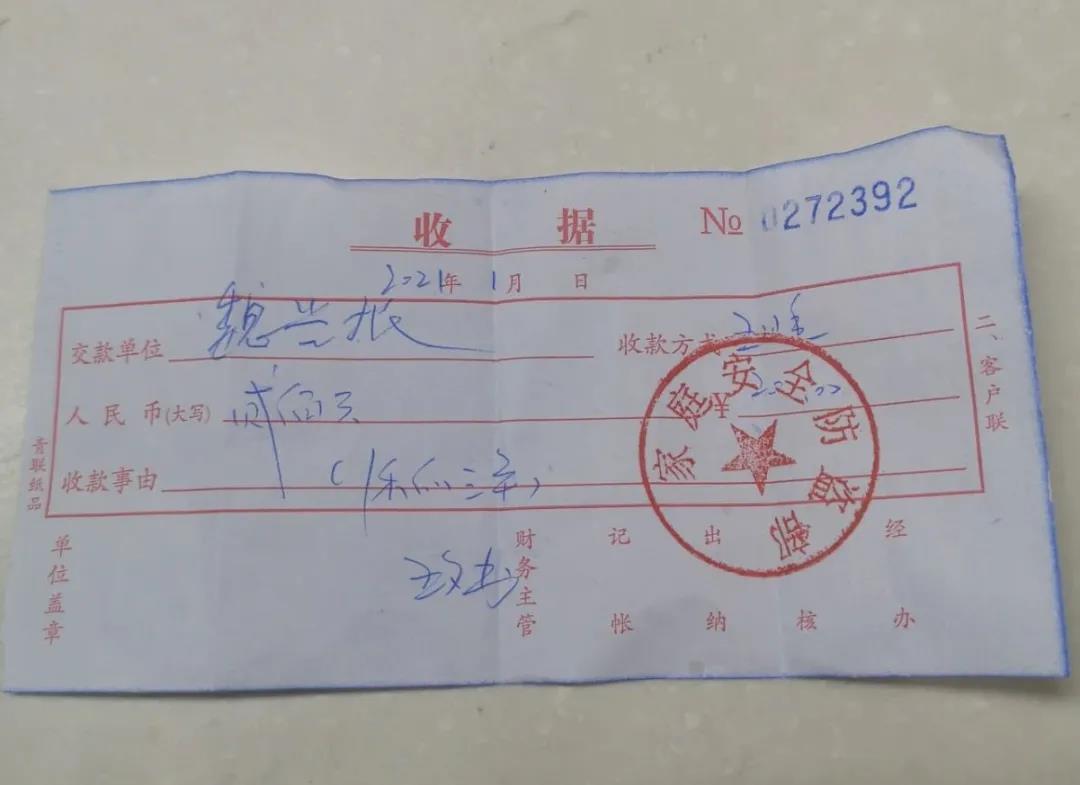 收据 № 0272392
2021年1月 日
交款单位 魏兴根 收款方式
人民币(大写) 贰佰元 ¥ 200.00
收款事由 (保修三年)
二、客户联
青联纸品
单位盖章 财务主管 记帐 出纳 核 经办
家庭安全防盗部